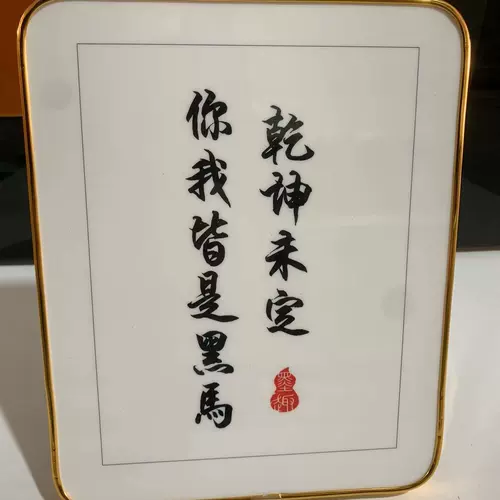 乾坤未定
你我皆是黑馬
墨趣